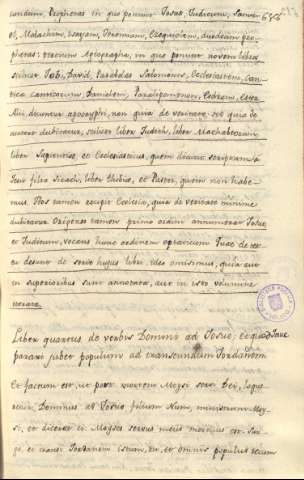 cundum, Prophetas in quo ponunt Josue, Judicum, Samue-
658
el, Malachim, Isayam, Jeremiam, Ezequielem, duodecim pro-
phetas: tercium Agiographa, in quo ponunt novem libros
scilicet Job, David, Parabolas Salomonis, Ecclesiasten, Can-
tica canticorum, Danielem, Paralipomenon, Esdram, Ester
Alii dicuntur apocryphi, non quia de veritate, sed quia de
autore dubitatur, scilicet liber Judith, liber Machabeorum,
liber Sapientie, et Ecclesiasticus, quem dicunt scripsisse
Jesu filio Sirach, liber Thobie, et Pastor, quem non habe-
mus. Hos tamen recipit Ecclesia, quia de veritate minime
dubitatur. Origenes tamen primo ordini annumerat Josue,
et Judicum, vocans hunc ordinem
et desunt de serie hujus libri ideo omisimus, quia
in superioribus sunt annotata, aut in isto volumine
Liber quartus de verbis Domini ad Josue, et quod
parari jubet populum ad transeundum Jordanem
Et factum est ut post mortem Moysi servi Dei, loque-
retur Dominus ad Josue filium Nun, ministrum Moy-
si, et diceret ei Moyses servus meus mortuus est Sur-
ge, et transi Jordanem istum, tu, et omnis populus tecum